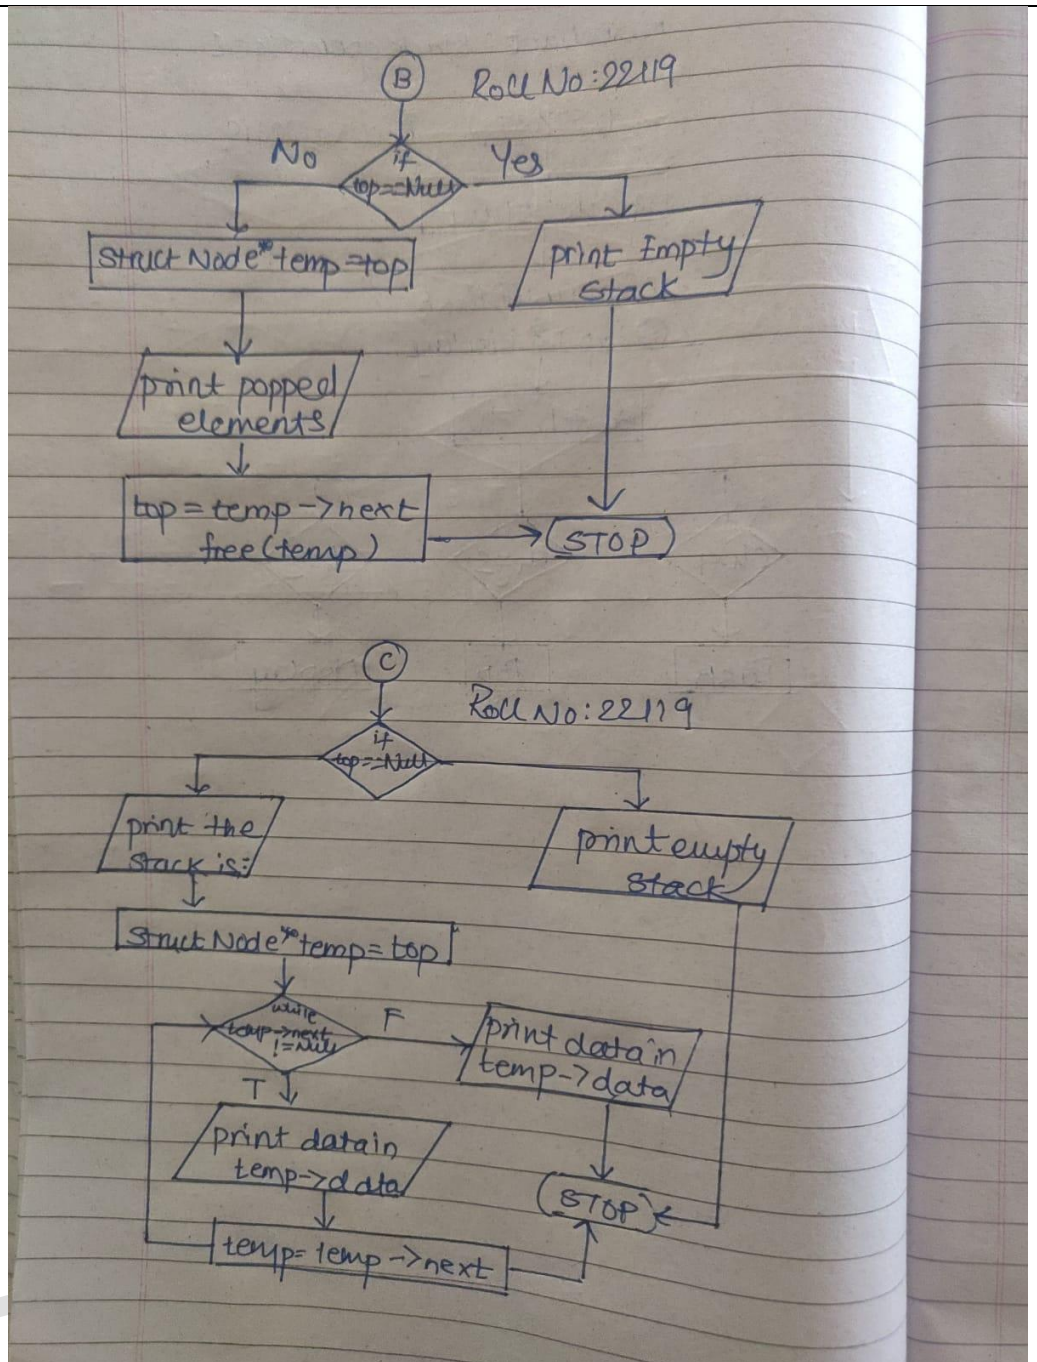 B
Roll No:22119
No
if
top==Null
Yes
struct Node*temp=top
print Empty
stack
print popped
elements
top=temp->next
free(temp)
STOP
C
Roll No:22119
if
top==Null
print the
stack is:
print empty
stack
struct Node*temp=top
while
temp->next
!=Null
F
print data in
temp->data
T
print data in
temp->data
STOP
temp=temp->next